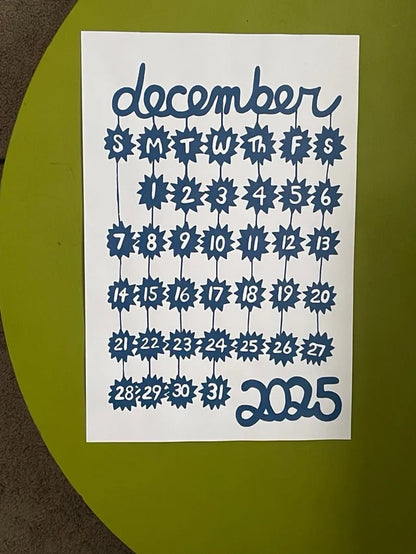 december
S M T W Th F S
1 2 3 4 5 6
7 8 9 10 11 12 13
14 15 16 17 18 19 20
21 22 23 24 25 26 27
28 29 30 31
2025